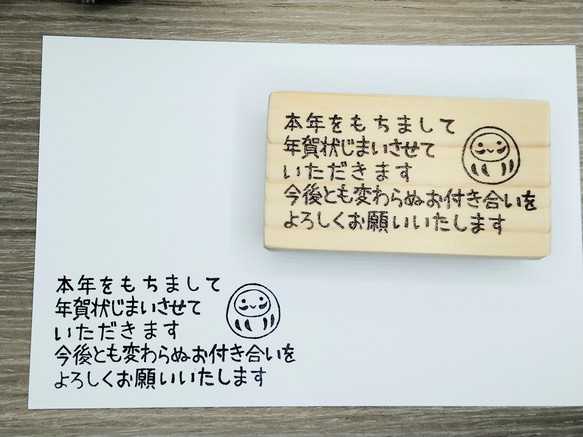 本年をもちまして
年賀状じまいさせて
いただきます
今後とも変わらぬお付き合いを
よろしくお願いいたします
本年をもちまして
年賀状じまいさせて
いただきます
今後とも変わらぬお付き合いを
よろしくお願いいたします